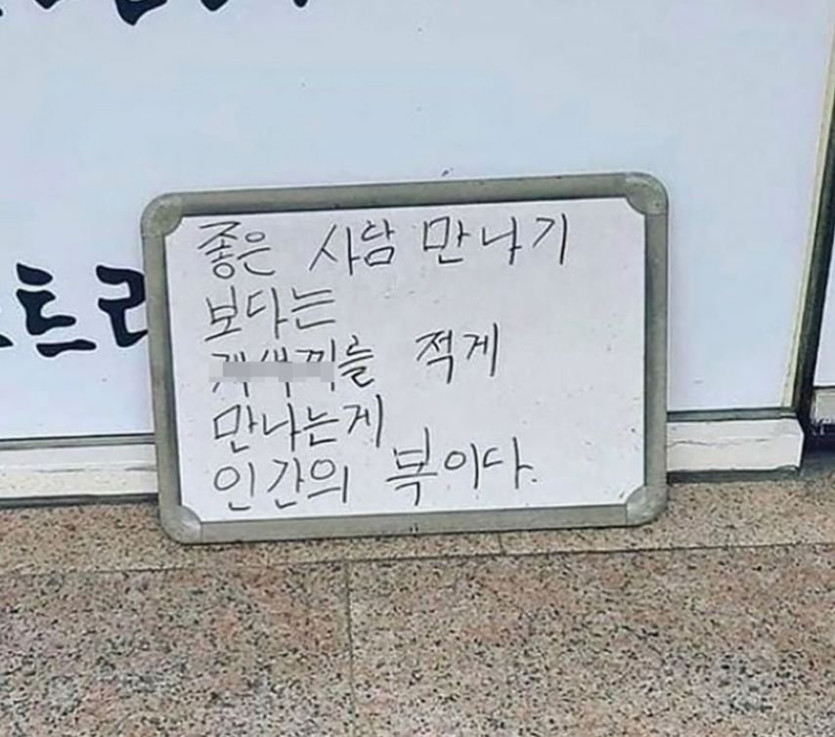 좋은 사람 만나기
보다는
개색끼를 적게
만나는게
인간의 복이다.
트리